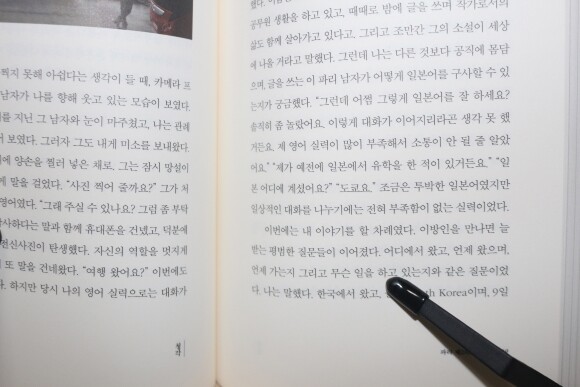 찍지 못해 아쉽다는 생각이 들 때, 카메라 프
남자가 나를 향해 웃고 있는 모습이 보였다.
를 지닌 그 남자와 눈이 마주쳤고, 나는 관례
어 보였다. 그러자 그도 내게 미소를 보내왔다.
에 양손을 찔러 넣은 채로, 그는 잠시 망설이
게 말을 걸었다. “사진 찍어 줄까요?” 그가 처
영어였다. “그래 주실 수 있나요? 그럼 좀 부탁
감사하다는 말과 함께 휴대폰을 건넸고, 덕분에
전신사진이 탄생했다. 자신의 역할을 멋지게
또 말을 건네왔다. “여행 왔어요?” 이번에도
다. 하지만 당시 나의 영어 실력으로는 대화가
청각
공무원 생활을 하고 있고, 때때로 밤에 글을 쓰며 작가로서의
삶도 함께 살아가고 있다고. 그리고 조만간 그의 소설이 세상
에 나올 거라고 말했다. 그런데 나는 다른 것보다 공직에 몸담
으며, 글을 쓰는 이 파리 남자가 어떻게 일본어를 구사할 수 있
는지가 궁금했다. “그런데 어쩜 그렇게 일본어를 잘 하세요?
솔직히 좀 놀랐어요. 이렇게 대화가 이어지리라곤 생각 못 했
거든요. 제 영어 실력이 많이 부족해서 소통이 안 될 줄 알았
어요.” “제가 예전에 일본에서 유학을 한 적이 있거든요.” “일
본 어디에 계셨어요?” “도쿄요.” 조금은 투박한 일본어였지만
일상적인 대화를 나누기에는 전혀 부족함이 없는 실력이었다.
이번에는 내가 이야기를 할 차례였다. 이방인을 만나면 늘
받는 평범한 질문들이 이어졌다. 어디에서 왔고, 언제 왔으며,
언제 가는지 그리고 무슨 일을 하고 있는지와 같은 질문이었
다. 나는 말했다. 한국에서 왔고, th Korea이며, 9일